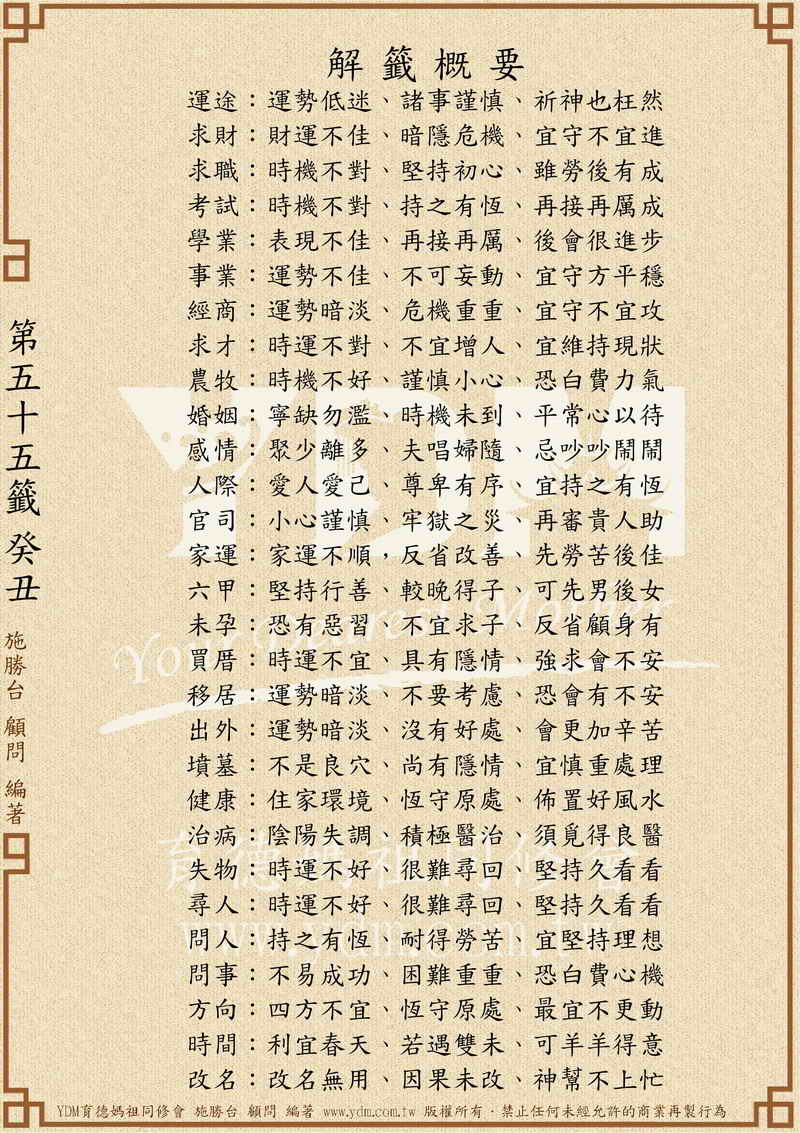 解籤概要
運途：運勢低迷、諸事謹慎、祈神也枉然
求財：財運不佳、暗隱危機、宜守不宜進
求職：時機不對、堅持初心、雖勞後有成
考試：時機不對、持之有恆、再接再厲成
學業：表現不佳、再接再厲、後會很進步
事業：運勢不佳、不可妄動、宜守方平穩
經商：運勢暗淡、危機重重、宜守不宜攻
求才：時運不對、不宜增人、宜維持現狀
農牧：時機不好、謹慎小心、恐白費力氣
婚姻：寧缺勿濫、時機未到、平常心以待
感情：聚少離多、夫唱婦隨、忌吵吵鬧鬧
人際：愛人愛己、尊卑有序、宜持之有恆
官司：小心謹慎、牢獄之災、再審貴人助
家運：家運不順，反省改善、先勞苦後佳
六甲：堅持行善、較晚得子、可先男後女
未孕：恐有惡習、不宜求子、反省顧身有
買厝：時運不宜、具有隱情、強求會不安
移居：運勢暗淡、不要考慮、恐會有不安
出外：運勢暗淡、沒有好處、會更加辛苦
墳墓：不是良穴、尚有隱情、宜慎重處理
健康：住家環境、恆守原處、佈置好風水
治病：陰陽失調、積極醫治、須覓得良醫
失物：時運不好、很難尋回、堅持久看看
尋人：時運不好、很難尋回、堅持久看看
問人：持之有恆、耐得勞苦、宜堅持理想
問事：不易成功、困難重重、恐白費心機
方向：四方不宜、恆守原處、最宜不更動
時間：利宜春天、若遇雙未、可羊羊得意
改名：改名無用、因果未改、神幫不上忙
第五十五籤 癸丑
施勝台 顧問 編著
YDM
Your Dearest Mother
育德媽祖同修會
www.ydm.com.tw
YDM育德媽祖同修會 施勝台 顧問 編著 www.ydm.com.tw 版權所有．禁止任何未經允許的商業再製行為